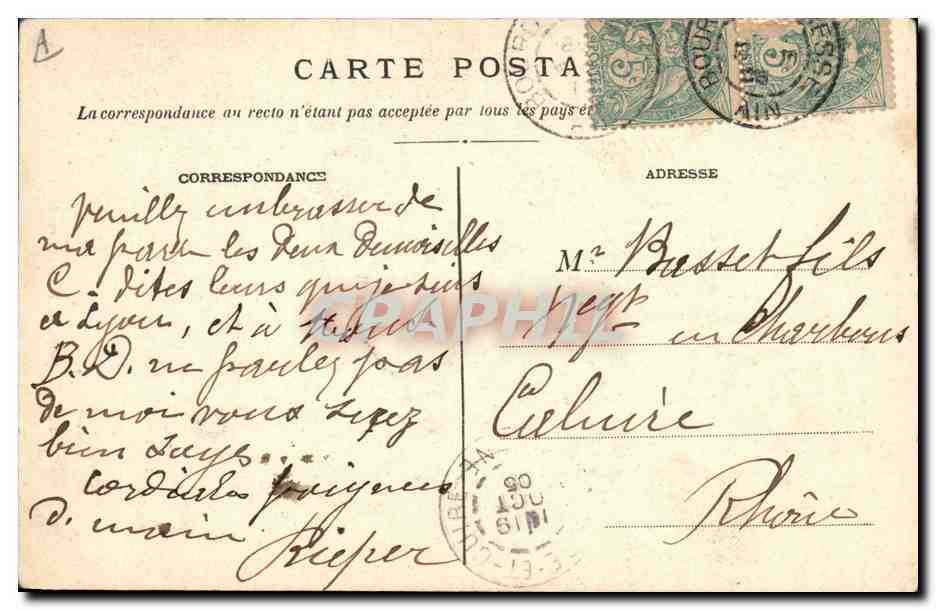 CARTE POSTA
La correspondance au recto n'étant pas acceptée par tous les pays
CORRESPONDANCE
Veuillez embrasser de
ma part les Deux Demoiselles
C. dites leurs que je suis
a Lyon, et à
B. D. ne parlez pas
de moi vous serez
bien sages....
Cordiales poignees
d. main
ADRESSE
Mr Busset fils
Negt en Charbons
Caluire
Rhône
5
5
BOURG
AIN
OCT
05
CRAPHIL